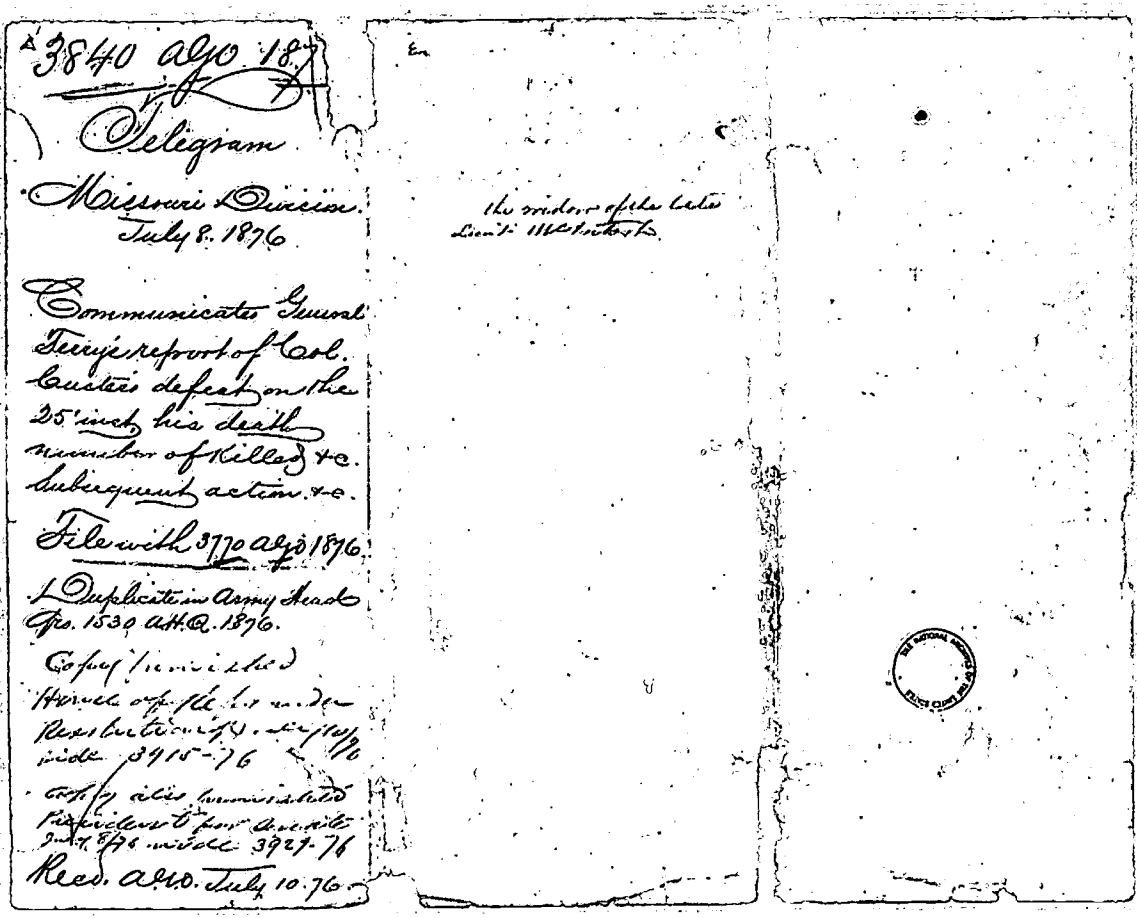 3840 AGO 187
Telegram
Missouri Division.
July 8. 1876
Communicates General
Terry's report of Col.
Custer's defeat on the
25' inst, his death
number of Killed &c.
Subsequent action. &c.
File with 3770 AGO 1876.
Duplicate in Army Head
Qrs. 1530 A.H.Q. 1876.
Copy furnished
House of under
Resolution of
vide 3915-76
Copy also furnished
President for Senate
July 8/76 vide 3927-76
Recd. A.G.O. July 10. 76
En
the widow of the late
Lieut: McIntosh.
THE NATIONAL ARCHIVES OF THE UNITED STATES